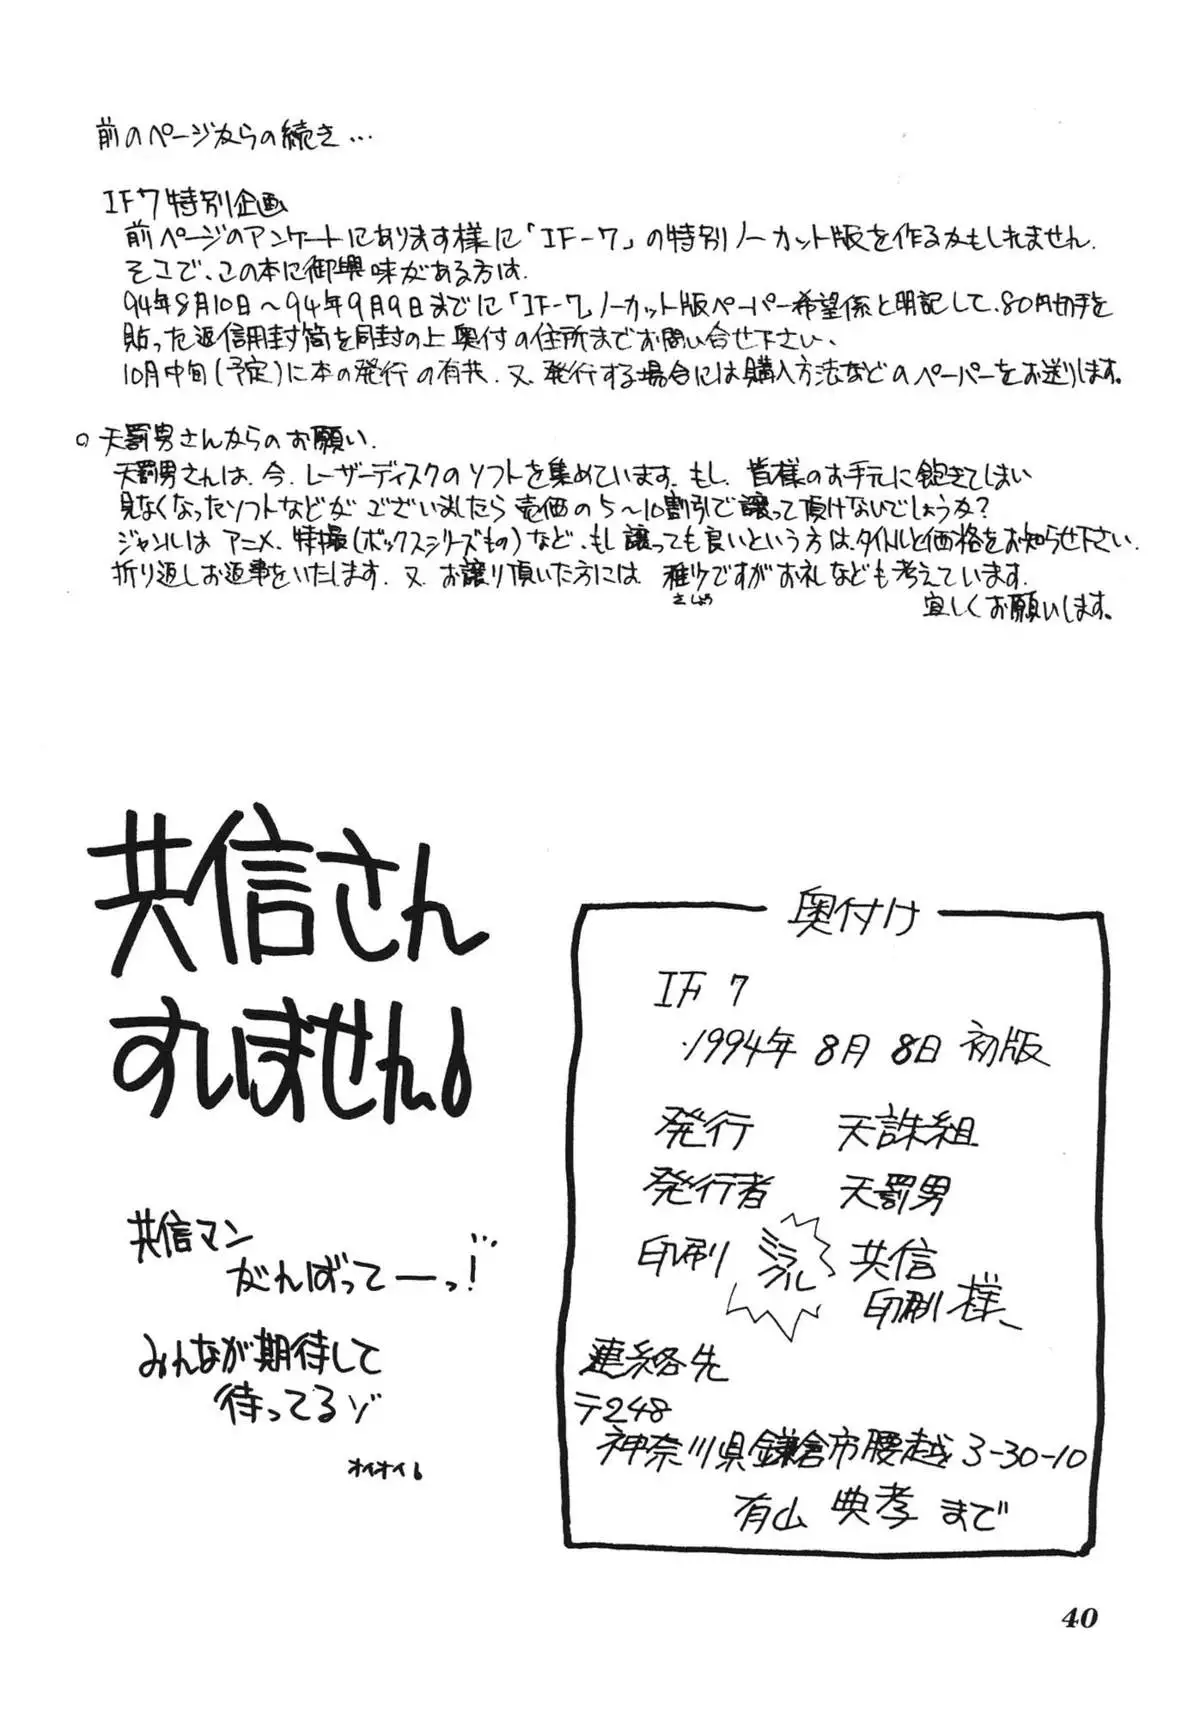 前のページからの続き…
IF7特別企画
前ページのアンケートにあります様に「IF-7」の特別ノーカット版を作るかもしれません.
そこで、この本に御興味がある方は.
94年8月10日～94年9月9日までに「IF-7」ノーカット版ペーパー希望係と明記して、80円切手を
貼った返信用封筒を同封の上奥付の住所までお問い合せ下さい、
10月中旬(予定)に本の発行の有無.又.発行する場合には購入方法などのペーパーをお送りします。
○天罰男さんからのお願い.
天罰男さんは、今、レーザーディスクのソフトを集めています.もし.皆様のお手元に飽きてしまい
見なくなったソフトなどがございましたら壱価の5～10割引で譲って頂けないでしょうか?
ジャンルはアニメ、特撮(ボックスシリーズもの)など、もし譲っても良いという方は、タイトルと価格をお知らせ下さい.
折り返しお返事をいたします.又.お譲り頂いた方には 稚少ですがお礼なども考えています.
さしょう
宜しくお願いします。
共信さん
すいません。
共信マン
がんばってーっ!
みんなが期待して
待ってるゾ
オイオイ。
奥付け
IF 7
.1994年 8月 8日 初版
発行 天誅組
発行者 天罰男
印刷 ミラクル 共信
印刷 様、
連絡先
〒248
神奈川県鎌倉市腰越3-30-10
有山 典孝 まで
40